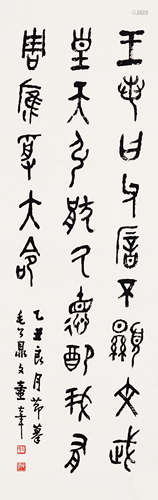 王若曰父㕈不顯文武
皇天引猒氒德配我有
周膺受大命
乙丑良月節摹
毛公鼎文